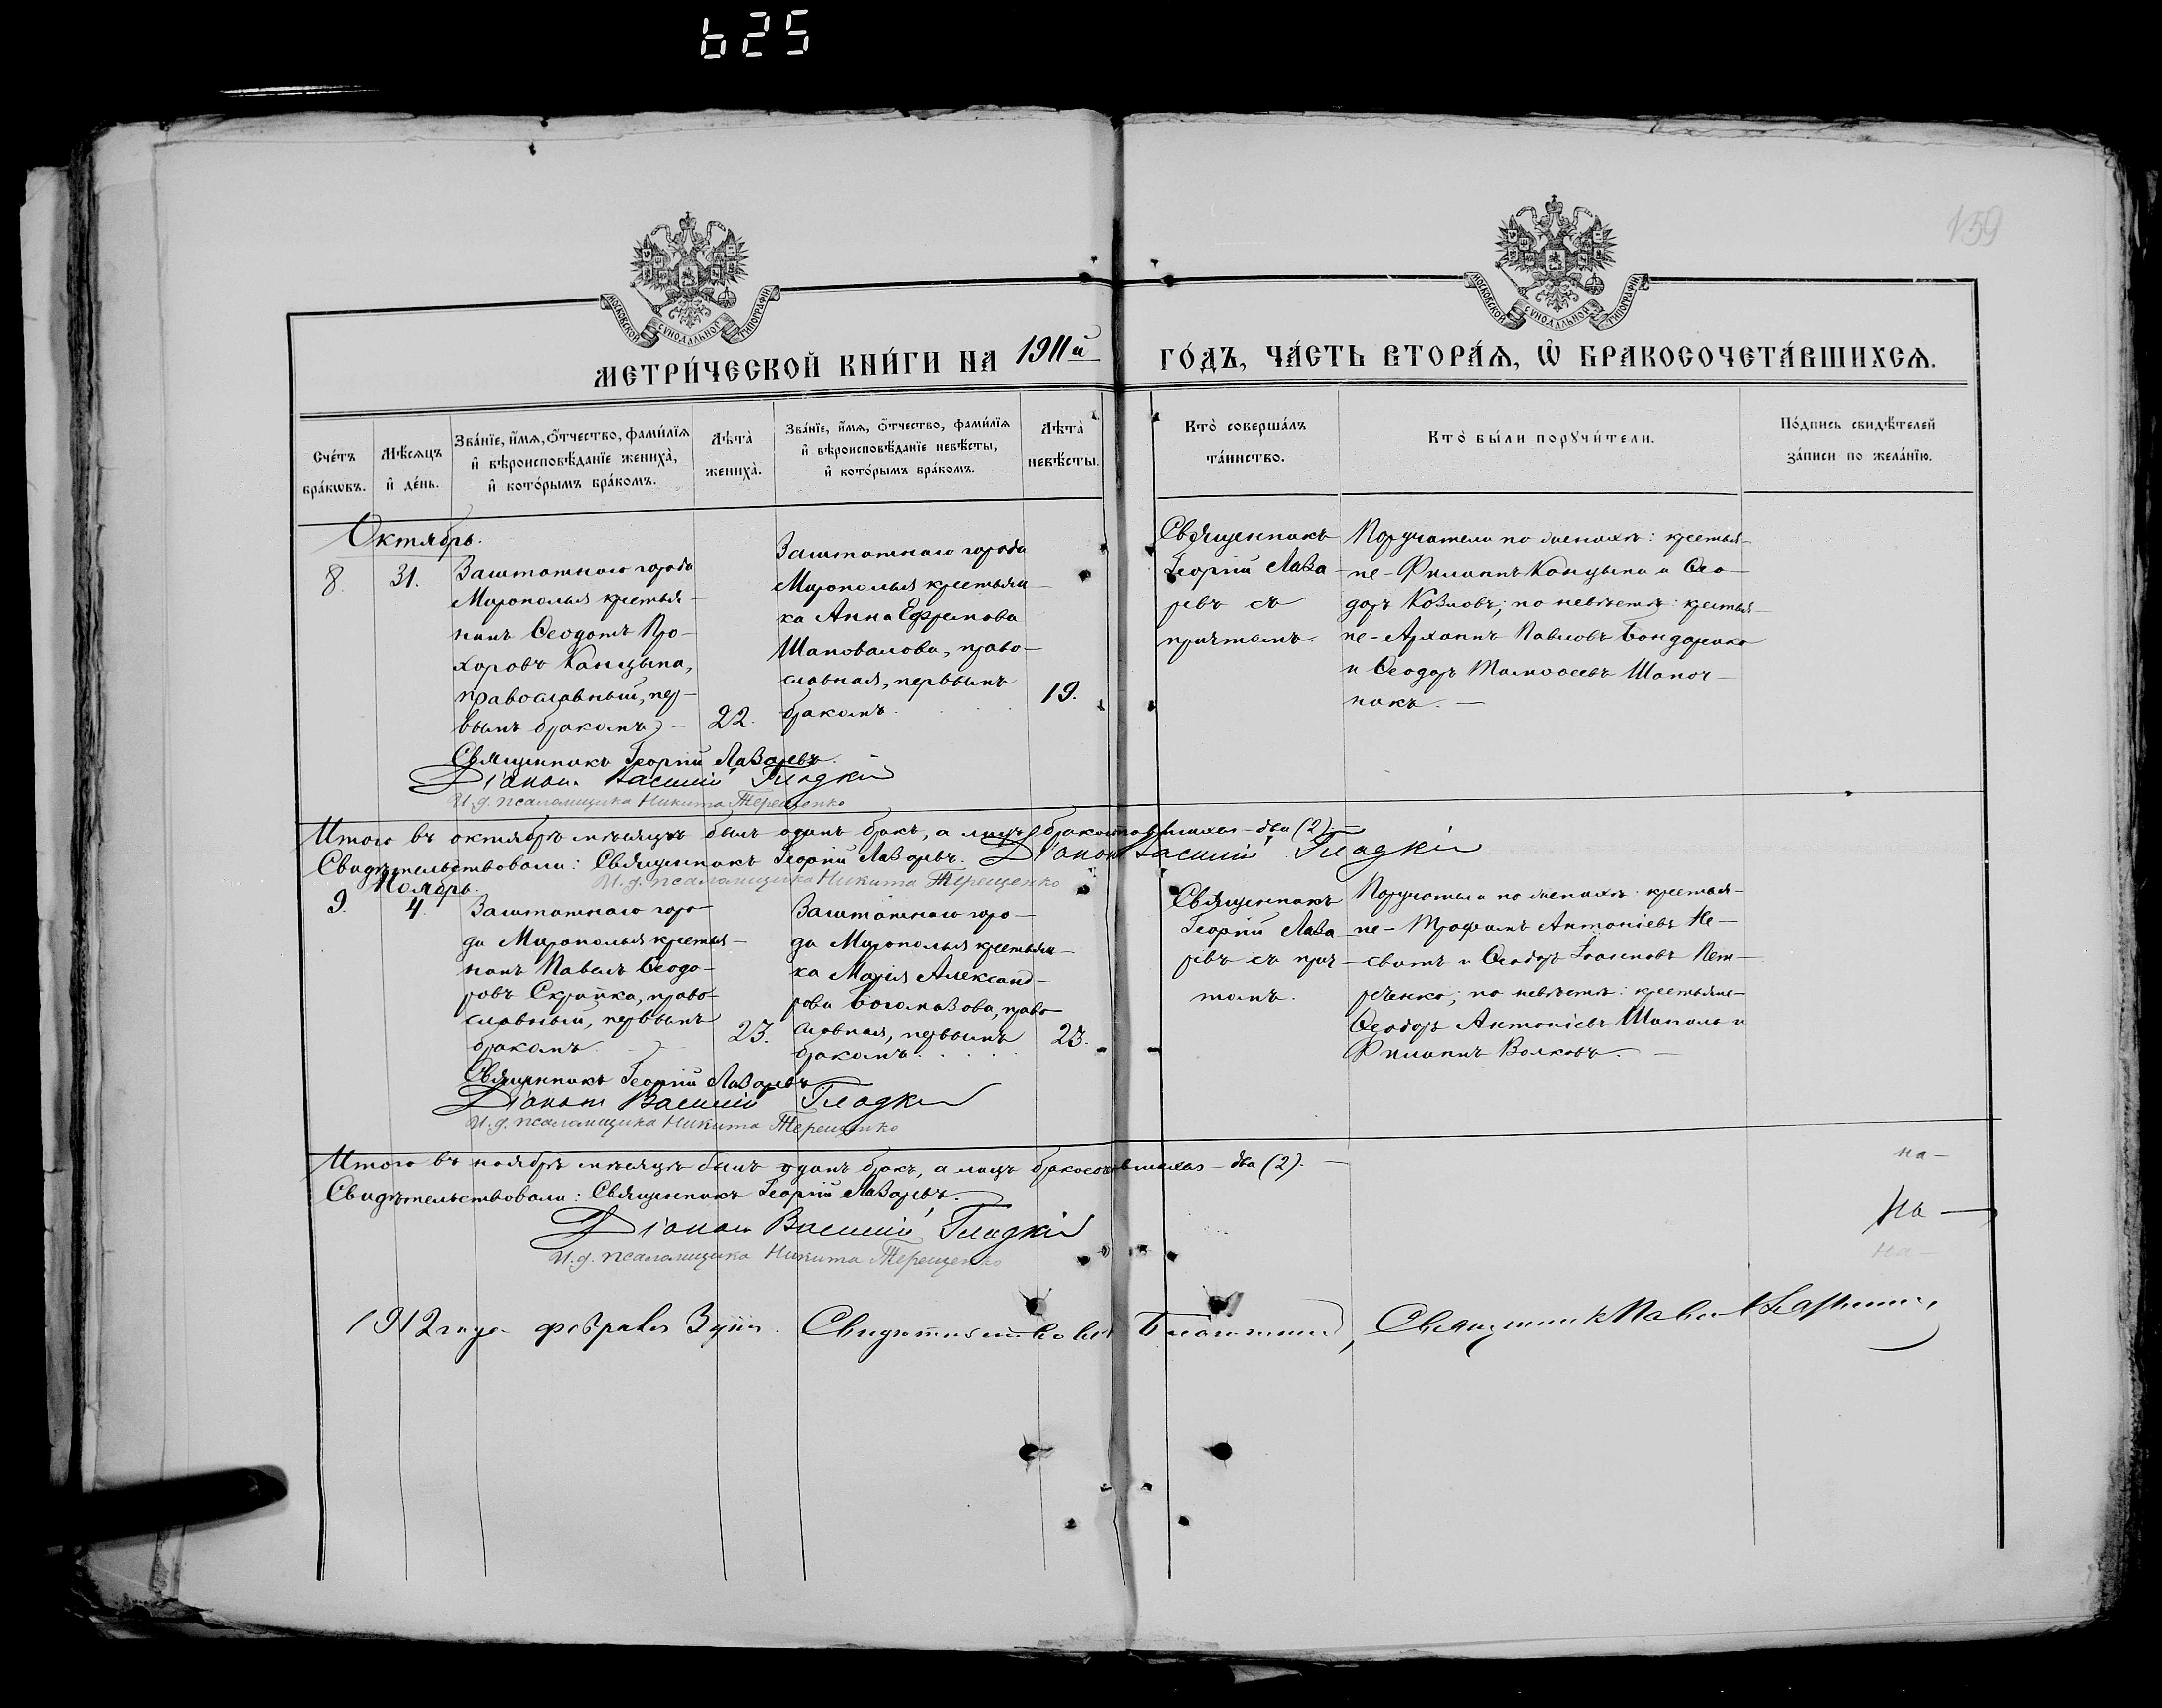 625
159
МОСКОВСКОЙ СУНОДАЛЬНОЙ ТИПОГРАФІИ
МОСКОВСКОЙ СУНОДАЛЬНОЙ ТИПОГРАФІИ
МЕТРИ́ЧЕСКОЙ КНИ́ГИ НА 1911й ГО́ДЪ, ЧА́СТЬ ВТОРА́Я, Ѡ БРАКОСОЧЕТА́ВШИХСЯ.
Сче́тъ бра́кѡвъ.
Мѣ́сяцъ и де́нь.
Зва́нїе, и́мя, ѻ́тчество, фами́лїя
и вѣроисповѣ́данїе жениха̀,
и кото́рымъ бра́комъ.
Лѣта̀ жениха̀.
Зва́нїе, и́мя, ѻ́тчество, фами́лїя
и вѣроисповѣ́данїе невѣ́сты,
и кото́рымъ бра́комъ.
Лѣта̀ невѣ́сты.
Кто̀ соверша́лъ
та́инство.
Кто̀ бы́ли порꙋчи́тели.
По́дпись свидѣ́телей
за́писи по жела́нїю.
Октябрь.
8.
31.
Заштатнаго города
Мирополья крестья-
нинъ Ѳеодотъ Про-
хоровъ Канцыпа,
православный, пер-
вымъ бракомъ
22.
Заштатнаго города
Мирополья крестьян-
ка Анна Ефремова
Шаповалова, право-
славная, первымъ
бракомъ
19.
Священникъ
Георгій Лаза-
ревъ съ
причтомъ.
Поручители по женихѣ: крестья-
не - Филиппъ Канцыпа и Ѳео-
доръ Козловъ; по невѣстѣ: крестья-
не - Архиппъ Павловъ Бондаренко
и Ѳеодоръ Тимоѳеевъ Шапоч-
никъ.
Священникъ Георгій Лазаревъ.
Діаконъ Василій Гладкій
И. д. псаломщика Никита Терещенко
Итого въ октябрѣ мѣсяцѣ былъ одинъ бракъ, а лицъ бракосочетавшихся - два (2).
Свидѣтельствовали: Священникъ Георгій Лазаревъ. Діаконъ Василій Гладкій
И. д. псаломщика Никита Терещенко
Ноябрь.
9.
4.
Заштатнаго горо-
да Мирополья крестья-
нинъ Павелъ Ѳеодо-
ровъ Скрипка, право-
славный, первымъ
бракомъ.
23.
Заштатнаго горо-
да Мирополья крестьян-
ка Марія Александ-
рова Богомазова, право
славная, первымъ
бракомъ
23.
Священникъ
Георгій Лаза-
ревъ съ прич-
томъ.
Поручители по женихѣ: крестья-
не - Трофимъ Антоніевъ Не-
свитъ и Ѳеодоръ Іоанновъ Пет-
ренко; по невѣстѣ: крестьяне -
Ѳеодоръ Антоніевъ и
Филиппъ Волковъ.
Священникъ Георгій Лазаревъ
Діаконъ Василій Гладкій
И. д. псаломщика Никита Терещенко
Итого въ ноябрѣ мѣсяцѣ былъ одинъ бракъ, а лицъ бракосочетавшихся - два (2).
на-
Свидѣтельствовали: Священникъ Георгій Лазаревъ.
На -
Діаконъ Василій Гладкій
И. д. псаломщика Никита Терещенко
на-
1912 года февраля 3 дня. Свидѣтельствовалъ Благочинный, Священникъ Павелъ